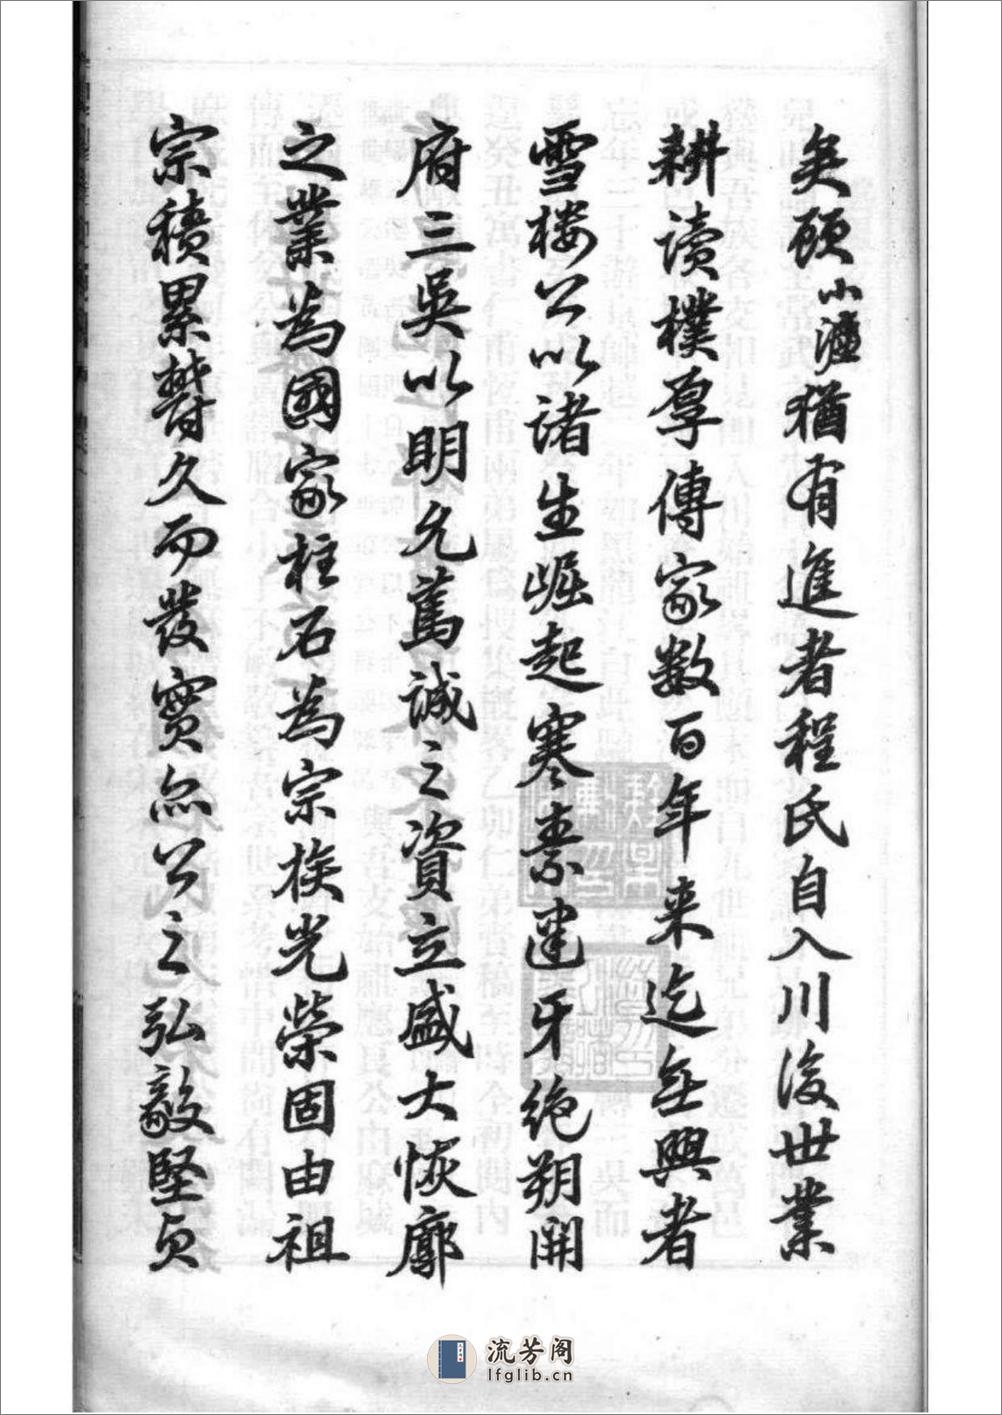 矣顾小澐猶有進者程氏自入川後世業
耕读樸厚傳家数百年来迄無興者
雪楼公以诸生崛起寒素建牙绝朔開
府三吴以明允篤诚之資立盛大恢廓
之業為國家柱石為宗族光榮固由祖
宗積累欝久而发實亦公之弘毅堅贞
流芳阁
lfglib.cn